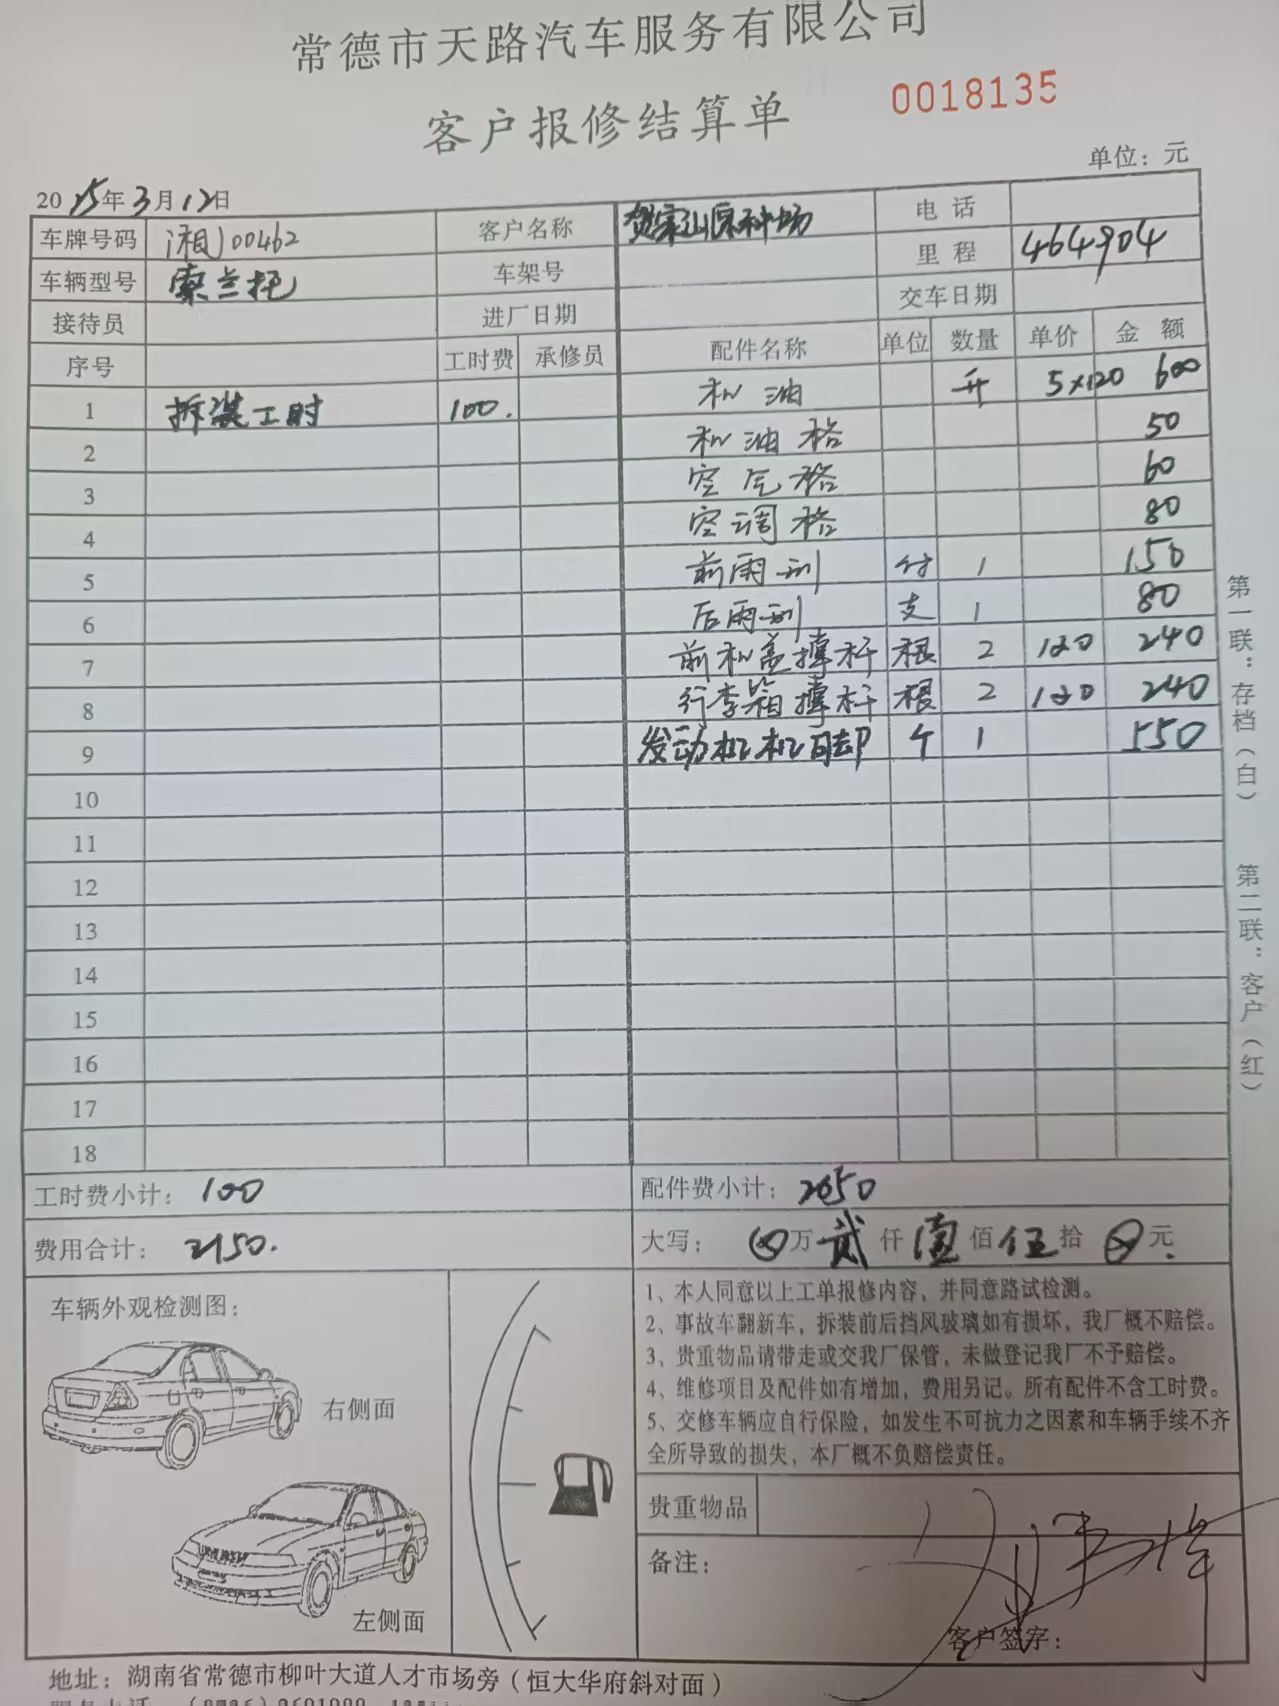 常德市天路汽车服务有限公司
客户报修结算单 0018135
单位：元
2025年3月12日
车牌号码 湘J00462 客户名称 贺家山原种场 电话
车辆型号 索兰托 车架号 里程 464904
接待员 进厂日期 交车日期
序号 工时费 承修员 配件名称 单位 数量 单价 金额
1 拆装工时 100. 机油 升 5×120 600
2 机油格 50
3 空气格 60
4 空调格 80
5 前雨刮 付 1 150
6 后雨刮 支 1 80
7 前机盖撑杆 根 2 120 240
8 行李箱撑杆 根 2 120 240
9 发动机机脚 个 1 550
10
11
12
13
14
15
16
17
18
工时费小计：100 配件费小计：2050
费用合计：2150. 大写：⊗万贰仟壹佰伍拾⊗元.
车辆外观检测图：
右侧面
左侧面
1、本人同意以上工单报修内容，并同意路试检测。
2、事故车翻新车，拆装前后挡风玻璃如有损坏，我厂概不赔偿。
3、贵重物品请带走或交我厂保管，未做登记我厂不予赔偿。
4、维修项目及配件如有增加，费用另记。所有配件不含工时费。
5、交修车辆应自行保险，如发生不可抗力之因素和车辆手续不齐
全所导致的损失，本厂概不负赔偿责任。
贵重物品
备注：
客户签字：
地址：湖南省常德市柳叶大道人才市场旁（恒大华府斜对面）
第一联：存档（白）
第二联：客户（红）